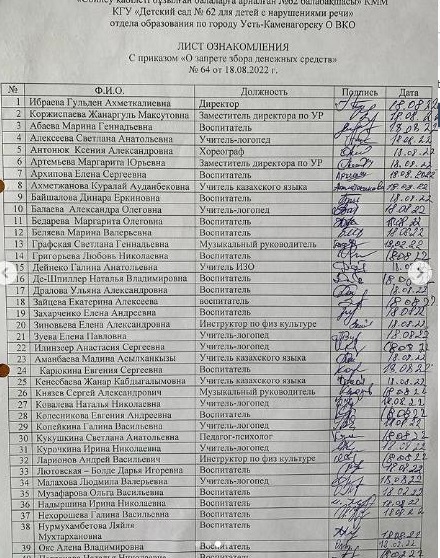 «Сөйлеу қабілеті бұзылған балаларға арналған №62 балабақшасы» КММ
КГУ «Детский сад № 62 для детей с нарушениями речи»
отдела образования по городу Усть-Каменогорску О ВКО
ЛИСТ ОЗНАКОМЛЕНИЯ
С приказом «О запрете збора денежных средств»
№ 64 от 18.08.2022 г.
№ Ф.И.О. Должность Подпись Дата
1 Ибраева Гульден Ахметкалиевна Директор 18.08.22
2 Коржиспаева Жанаргуль Максутовна Заместитель директора по УР 18.08.2
3 Абаева Марина Геннадьевна Воспитатель 18.08.2
4 Алексеева Светлана Анатольевна Учитель-логопед 18.08.22
5 Антонюк Ксения Александровна Хореограф 18.08.22
6 Артемьева Маргарита Юрьевна Заместитель директора по УР 18.08.22
7 Архипова Елена Сергеевна Воспитатель 18.08.2022
8 Ахметжанова Куралай Ауданбековна Учитель казахского языка 18.08.22
9 Байшалова Динара Еркиновна Воспитатель 18.08.22
10 Балаева Александра Олеговна Учитель-логопед 18.08.22
11 Бедарева Маргарита Олеговна Воспитатель 18.08.22
12 Беляева Марина Валерьевна Воспитатель 18.08.22
13 Графская Светлана Геннадьевна Музыкальный руководитель 18.08.22
14 Григорьева Любовь Николаевна Воспитатель 18.08.22
15 Дейнеко Галина Анатольевна Учитель ИЗО 18.0
16 Де-Шпиллер Наталья Владимировна Воспитатель 18.08.2
17 Дралова Ульяна Александровна Воспитатель 18.08.22
18 Зайцева Екатерина Алексеева воспитатель 18.08.22
19 Захарченко Елена Андреевна Воспитатель 18.08.22
20 Зиновьева Елена Александровна Инструктор по физ культуре 18.08.22
21 Зуева Елена Павловна Учитель-логопед 18.08.22
22 Илинзеер Анастасия Сергеевна Учитель-логопед 18.08.22
23 Аманбаева Малина Асылханкызы Учитель казахского языка 18.08.22
24 Карюкина Евгения Сергеевна Воспитатель 18.08.22
25 Кенесбаева Жанар Кабдыгалымовна Учитель казахского языка 18.08.22
26 Князев Сергей Александрович Музыкальный руководитель 18.08.22
27 Ковалева Наталья Николаевна Учитель-логопед 18.08.22
28 Колесникова Евгения Андреевна Воспитатель 18.08.22
29 Копейкина Галина Васильевна Учитель-логопед 18.08.22
30 Кукушкина Светлана Анатольевна Педагог-психолог 18.08.22
31 Курочкина Ирина Николаевна Учитель-логопед 18.08.22
32 Ларионов Андрей Васильевич Инструктор по физ культуре 18.08.22
33 Лютовская – Болде Дарья Игоревна Воспитатель 18.08.22
34 Малахова Людмила Валерьевна Учитель-логопед 18.08.22
35 Музафарова Ольга Васильевна Воспитатель 18.08.22
36 Надыршина Ирина Николаевна Воспитатель 18.08.22
37 Нехорошева Галина Васильевна Воспитатель 18.08.22
38 Нурмухамбетова Ляйля Воспитатель
Мухтархановна 18.08.22
39 Опс Алена Владимировна Воспитатель 18.08.22